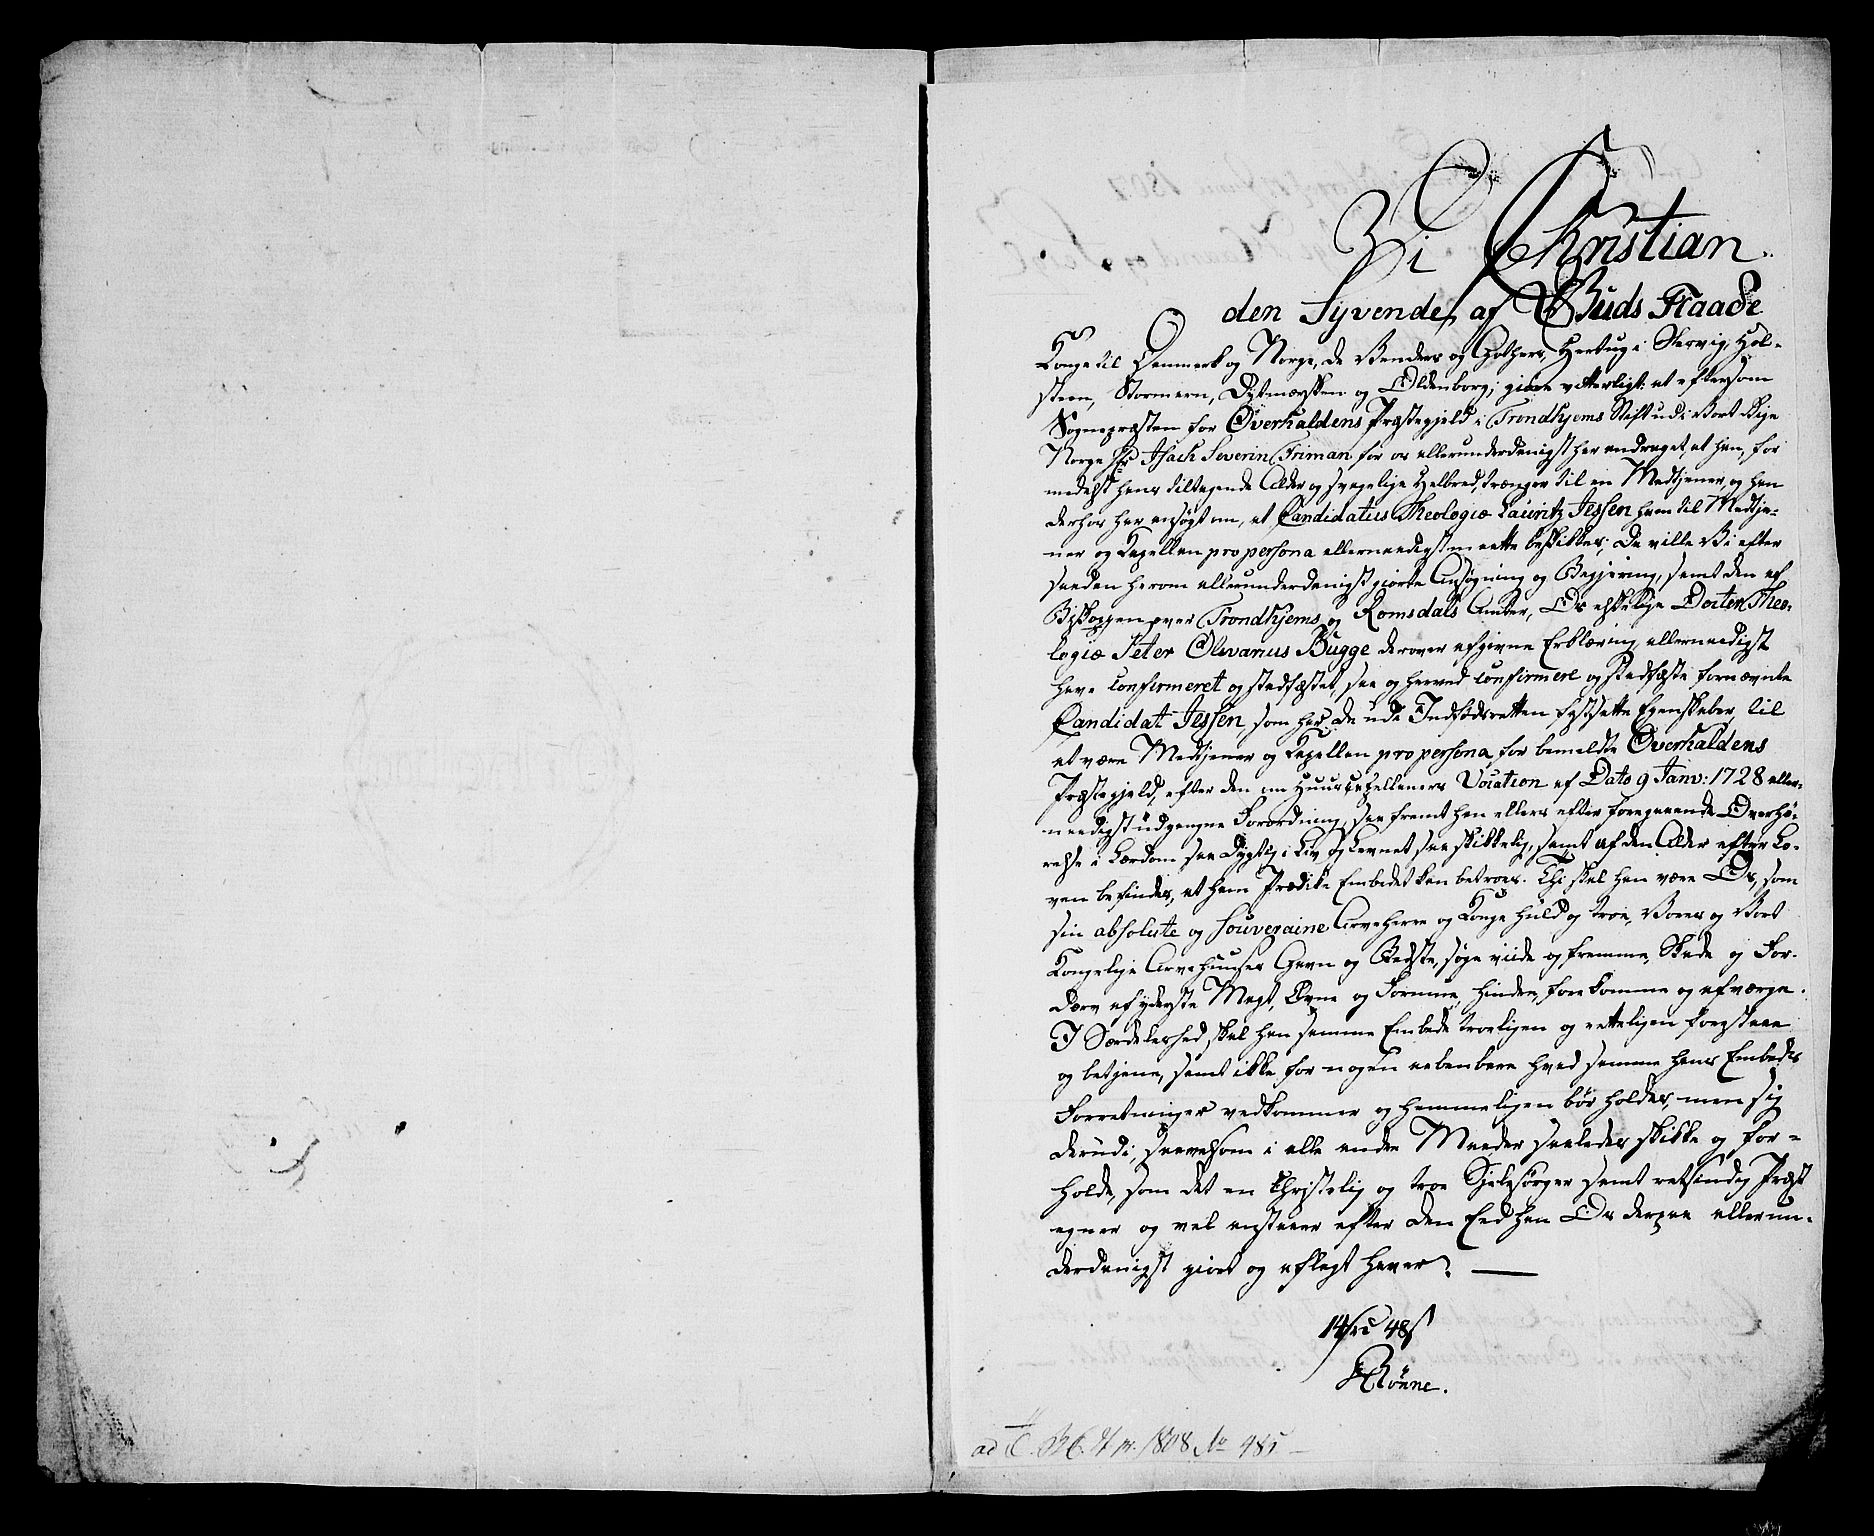 Vi Christian
den Syvende, af Guds Naade
Konge til Danmark og Norge, de Venders og Gothers, Hertug i Slesvig, Hol-
steen, Stormarn, Dytmarsken og Oldenborg; giøre vitterligt: at eftersom
Sognepræsten for Overhaldens Præstegjeld i Trondhjems Stift udi Vort Rige
Norge Hr Isach Severin Friman for os allerunderdanigst har andraget, at han, for
medelst hans tiltagende Alder og svagelige Helbred, trænger til en Medtjener, og han
derhos har ansøgt om, at Candidatus Theologiæ Lauritz Jessen ham til Medtje-
ner og Kapellan pro persona allernaadigst maatte beskikkes; Da ville Vi efter
saadan herom allerunderdanigst giorte Ansøgning og Begjæring, samt den af
Biskoppen over Trondhjems og Romsdals Amter, Os elskelige Doctor Theo-
logiæ Peter Olivarius Bugge derover afgivne Erklæring, allernaadigst
have confirmeret og stadfæstet, saa og herved confirmere og stadfæste fornævnte
Candidat Jessen, som har de udi Indfødsretten fastsatte Egenskaber, til
at være Medtjener og Kapellan pro persona for bemeldte Overhaldens
Præstegjeld, efter den om Huuskapellaners Vocation af Dato 9 Janv: 1728 aller-
naadigst udgangne Forordning, saa fremt han ellers efter foregaaende Overhø-
relse i Lærdom saa dygtig, i Liv og Levnet saa skikkelig, samt af den Alder efter Lo-
ven befindes, at ham Prædike Embedet kan betroes. Thi skal han være Os, som
sin absolute og souveraine Arveherre og Konge huld og troe, Vores og Vort
Kongelige Arvehuuses Gavn og Bedste, søge vide og fremme, Skade og For-
dærv af yderste Magt, Evne og Formue, hindre, forekomme og afværge.
I Særdeleshed skal han samme Embede troeligen og retteligen forestaae
og betjene, samt ikke for nogen aabenbare hvad samme hans Embeds
Forretninger vedkommer og hemmeligen bør holdes, men sig
derudi, saavelsom i alle andre Maader saaledes skikke og for-
holde, som det en Christelig og troe Sjelesørger samt retsindig Præst
egner og vel anstaaer efter den Eed han Os derpaa allerun-
derdanigst giort og aflagt haver.
14 rd 48 s
Rönne.
ad pr. 1808 No 485